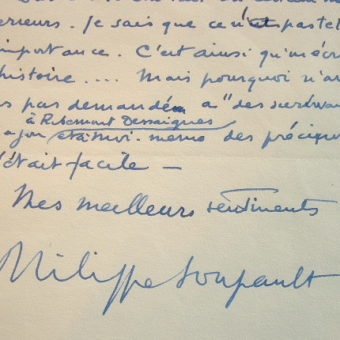 erreurs. Je sais que ce n'est pas tel
importance. C'est ainsi qu'on écri
histoire .... Mais pourquoi n'a
s pas demandé a "des survivan
à Ribemont Dessaignes
et à moi-même des précisi
était facile —
Mes meilleurs sentiments
Philippe Soupault